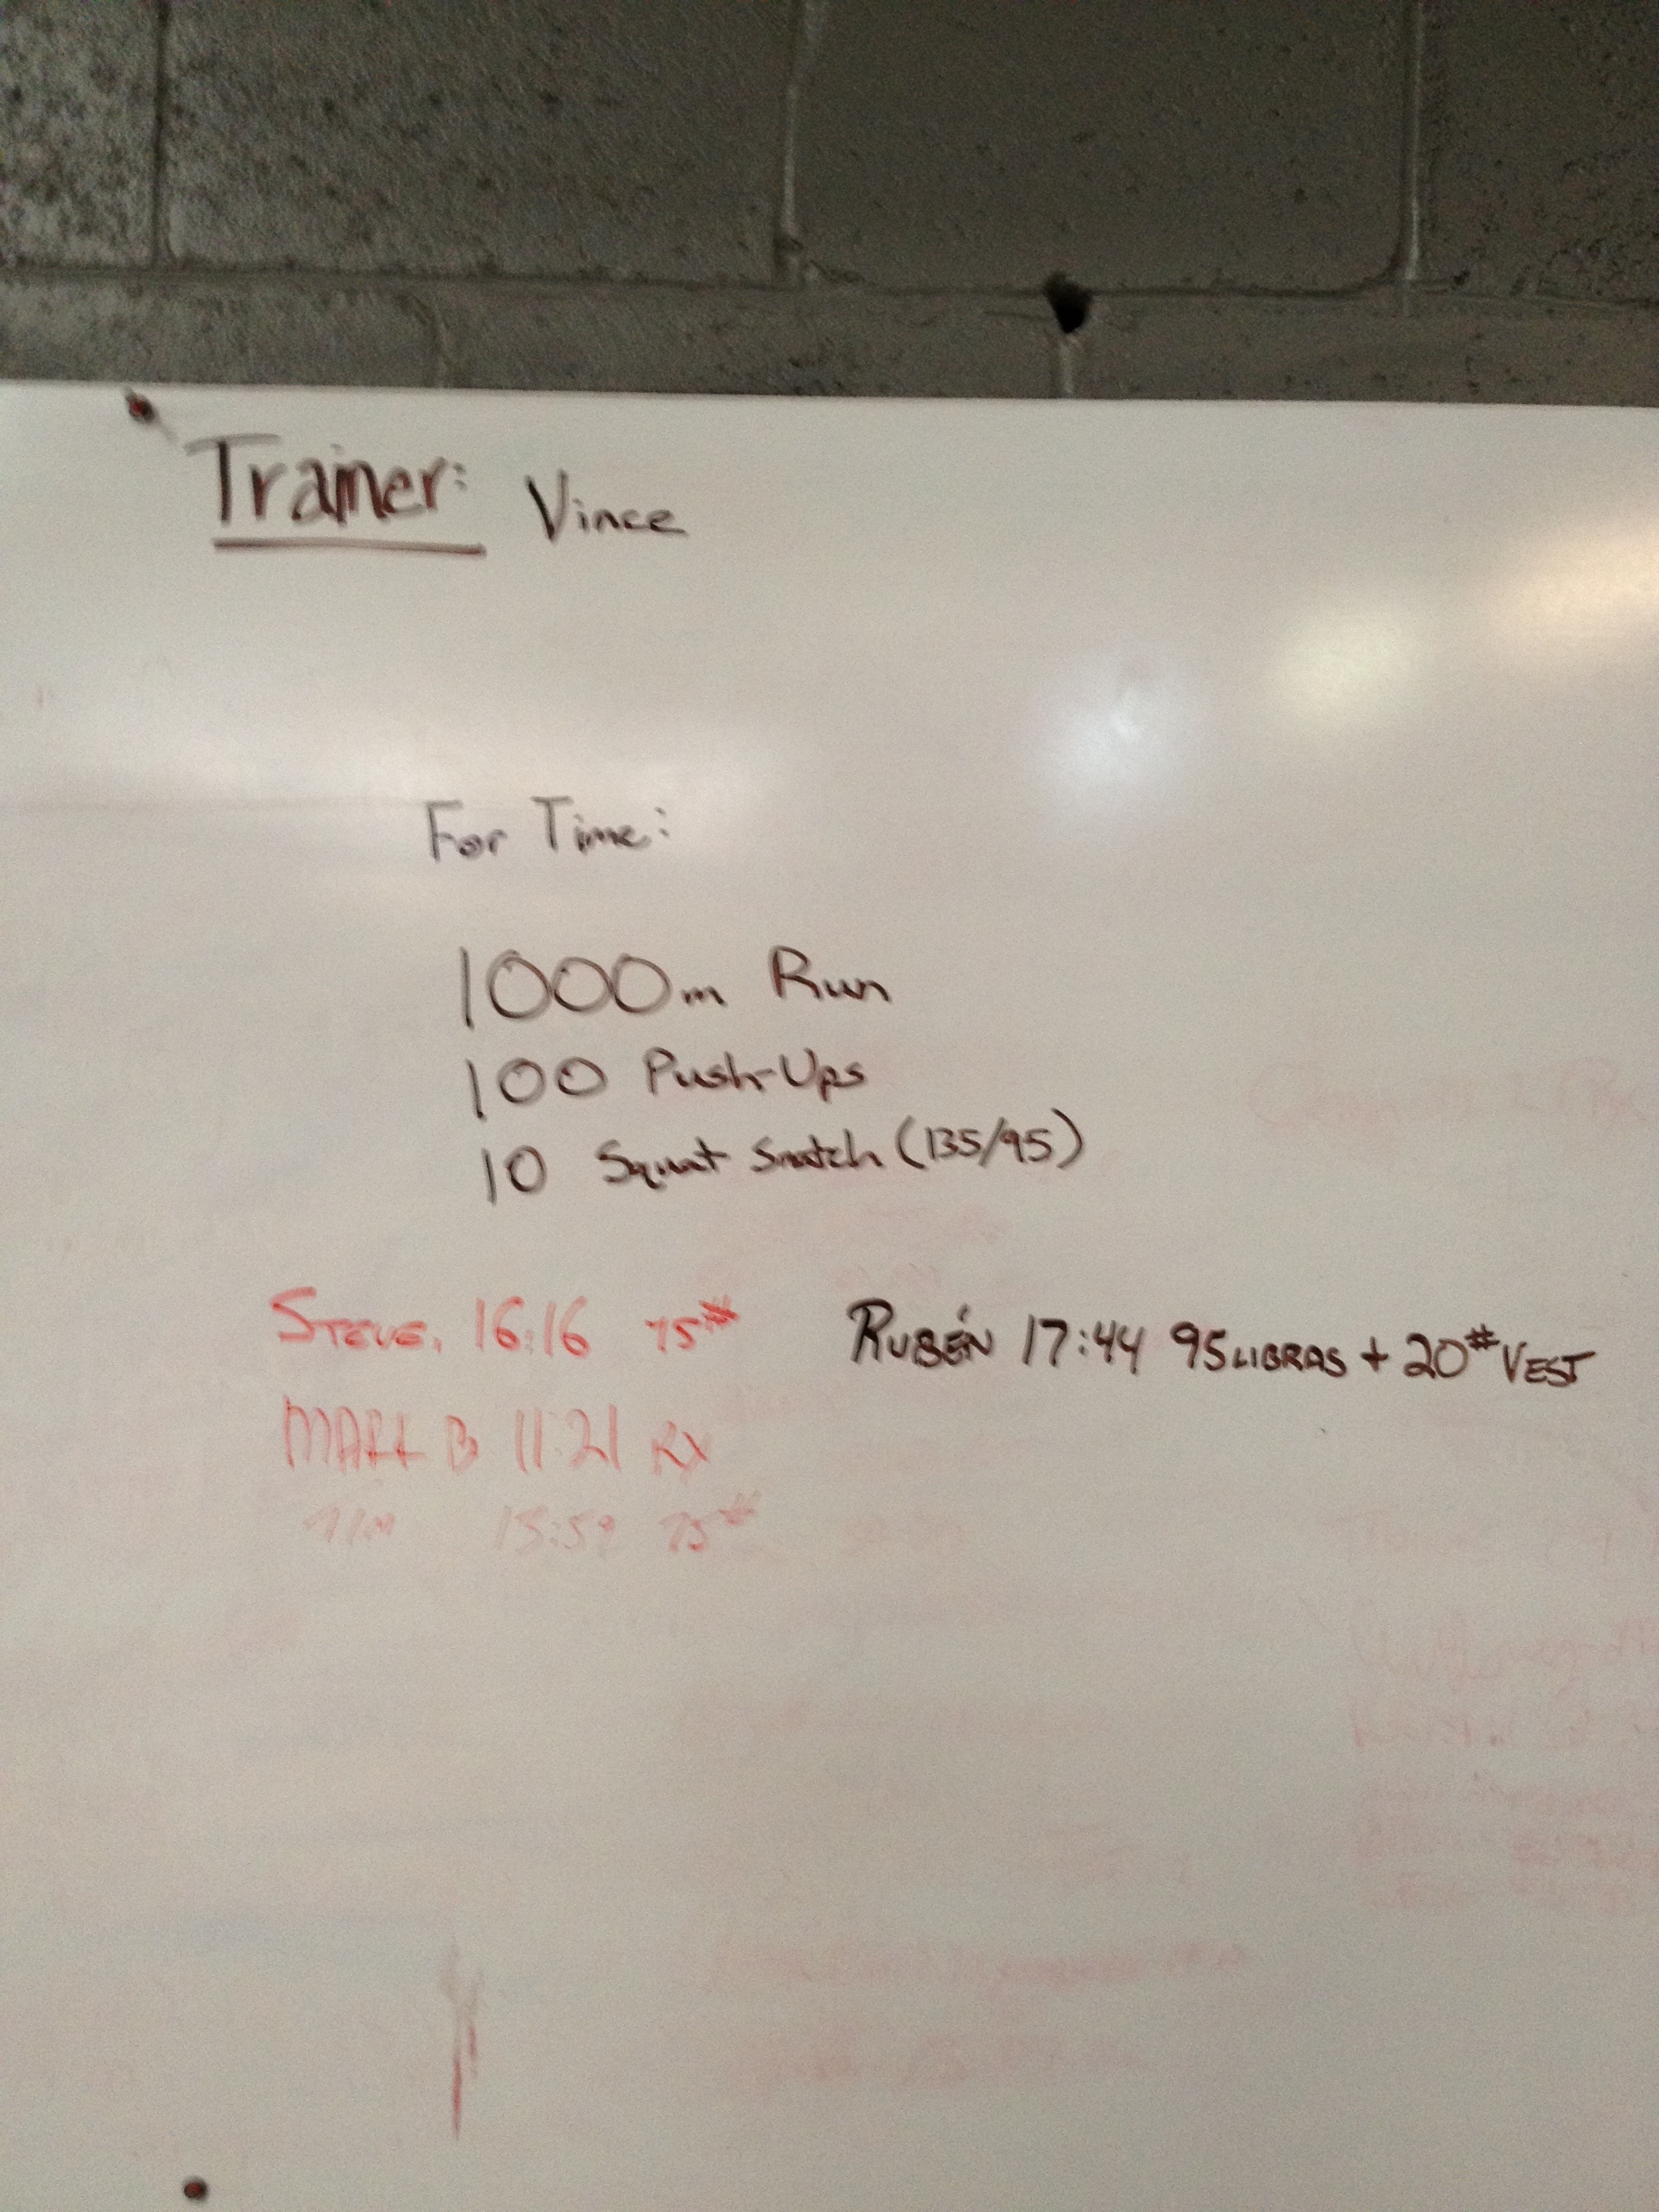 Trainer: Vince
For Time:
1000m Run
100 Push-Ups
10 Squat Snatch (135/95)
STEVE. 16:16 75#
RUBÉN 17:44 95 LIBRAS + 20# VEST
MATT B 11:21 RX
TIM 15:59 75#